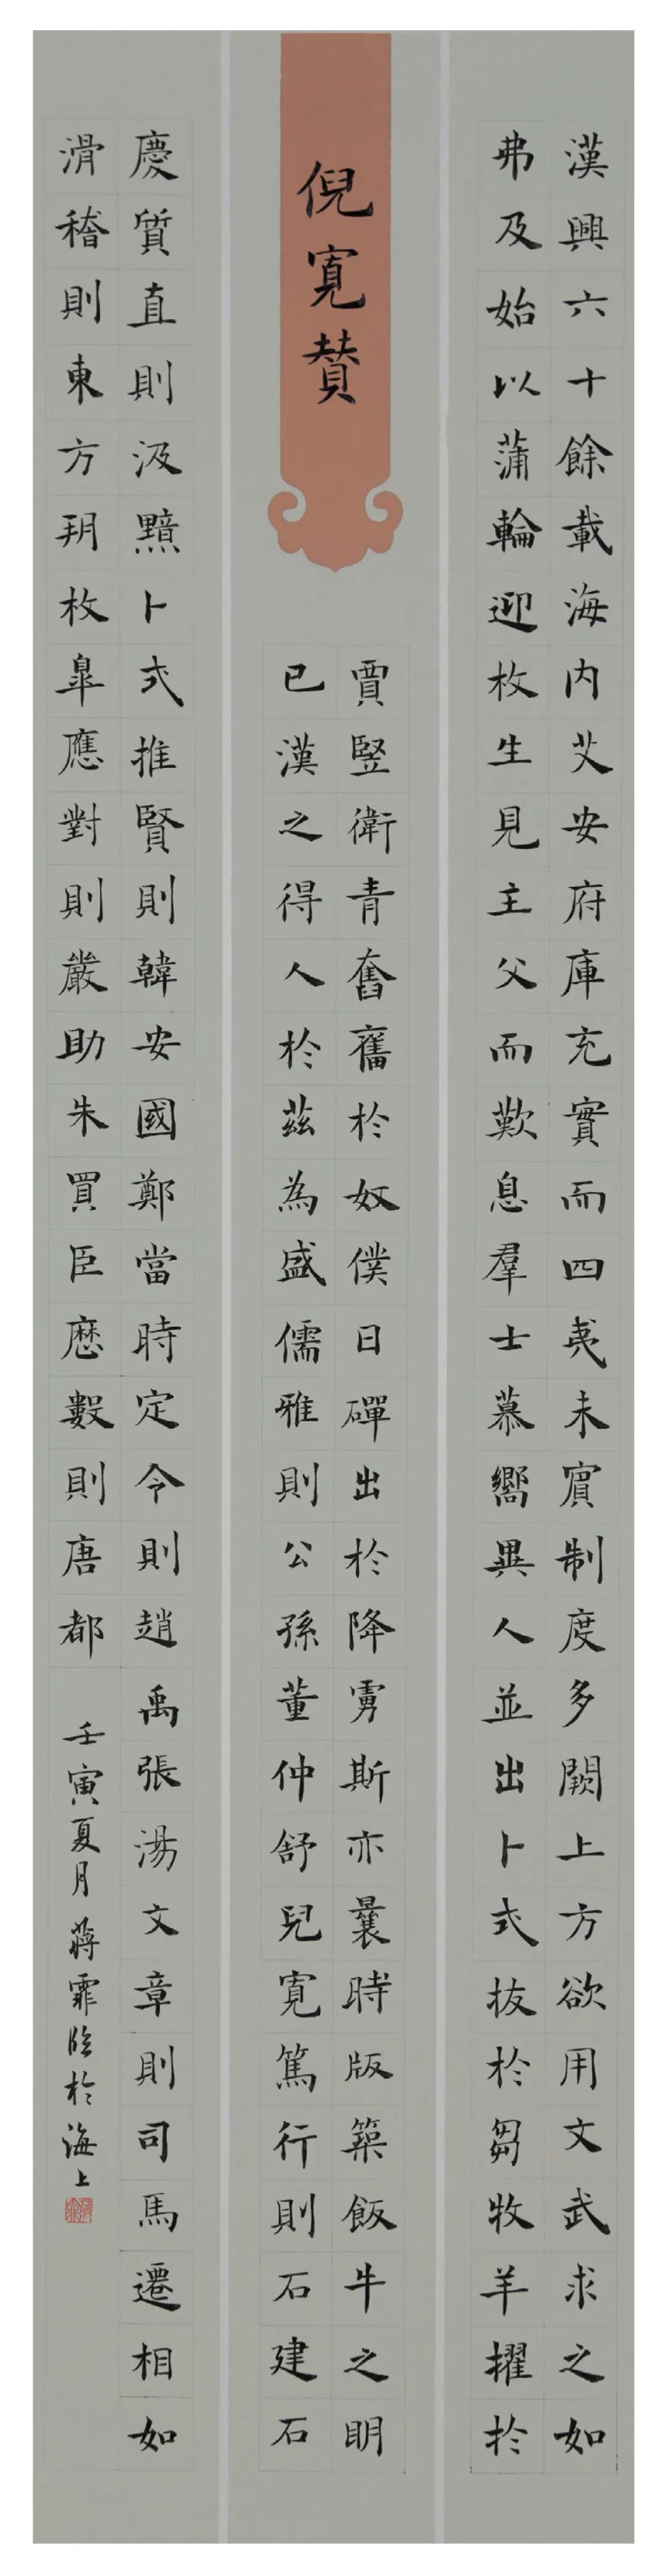 漢興六十餘載海内艾安府庫充實而四夷未賓制度多闕上方欲用文武求之如
弗及始以蒲輪迎枚生見主父而歎息羣士慕嚮異人並出卜式拔於芻牧羊擢於
倪寬賛
賈竪衛青奮舊於奴僕日磾出於降虜斯亦曩時版築飯牛之明
已漢之得人於茲為盛儒雅則公孫董仲舒兒寬篤行則石建石
慶質直則汲黯卜式推賢則韓安國鄭當時定令則趙禹張湯文章則司馬遷相如
滑稽則東方朔枚皐應對則嚴助朱買臣厯數則唐都
壬寅夏月蔣霏臨於海上